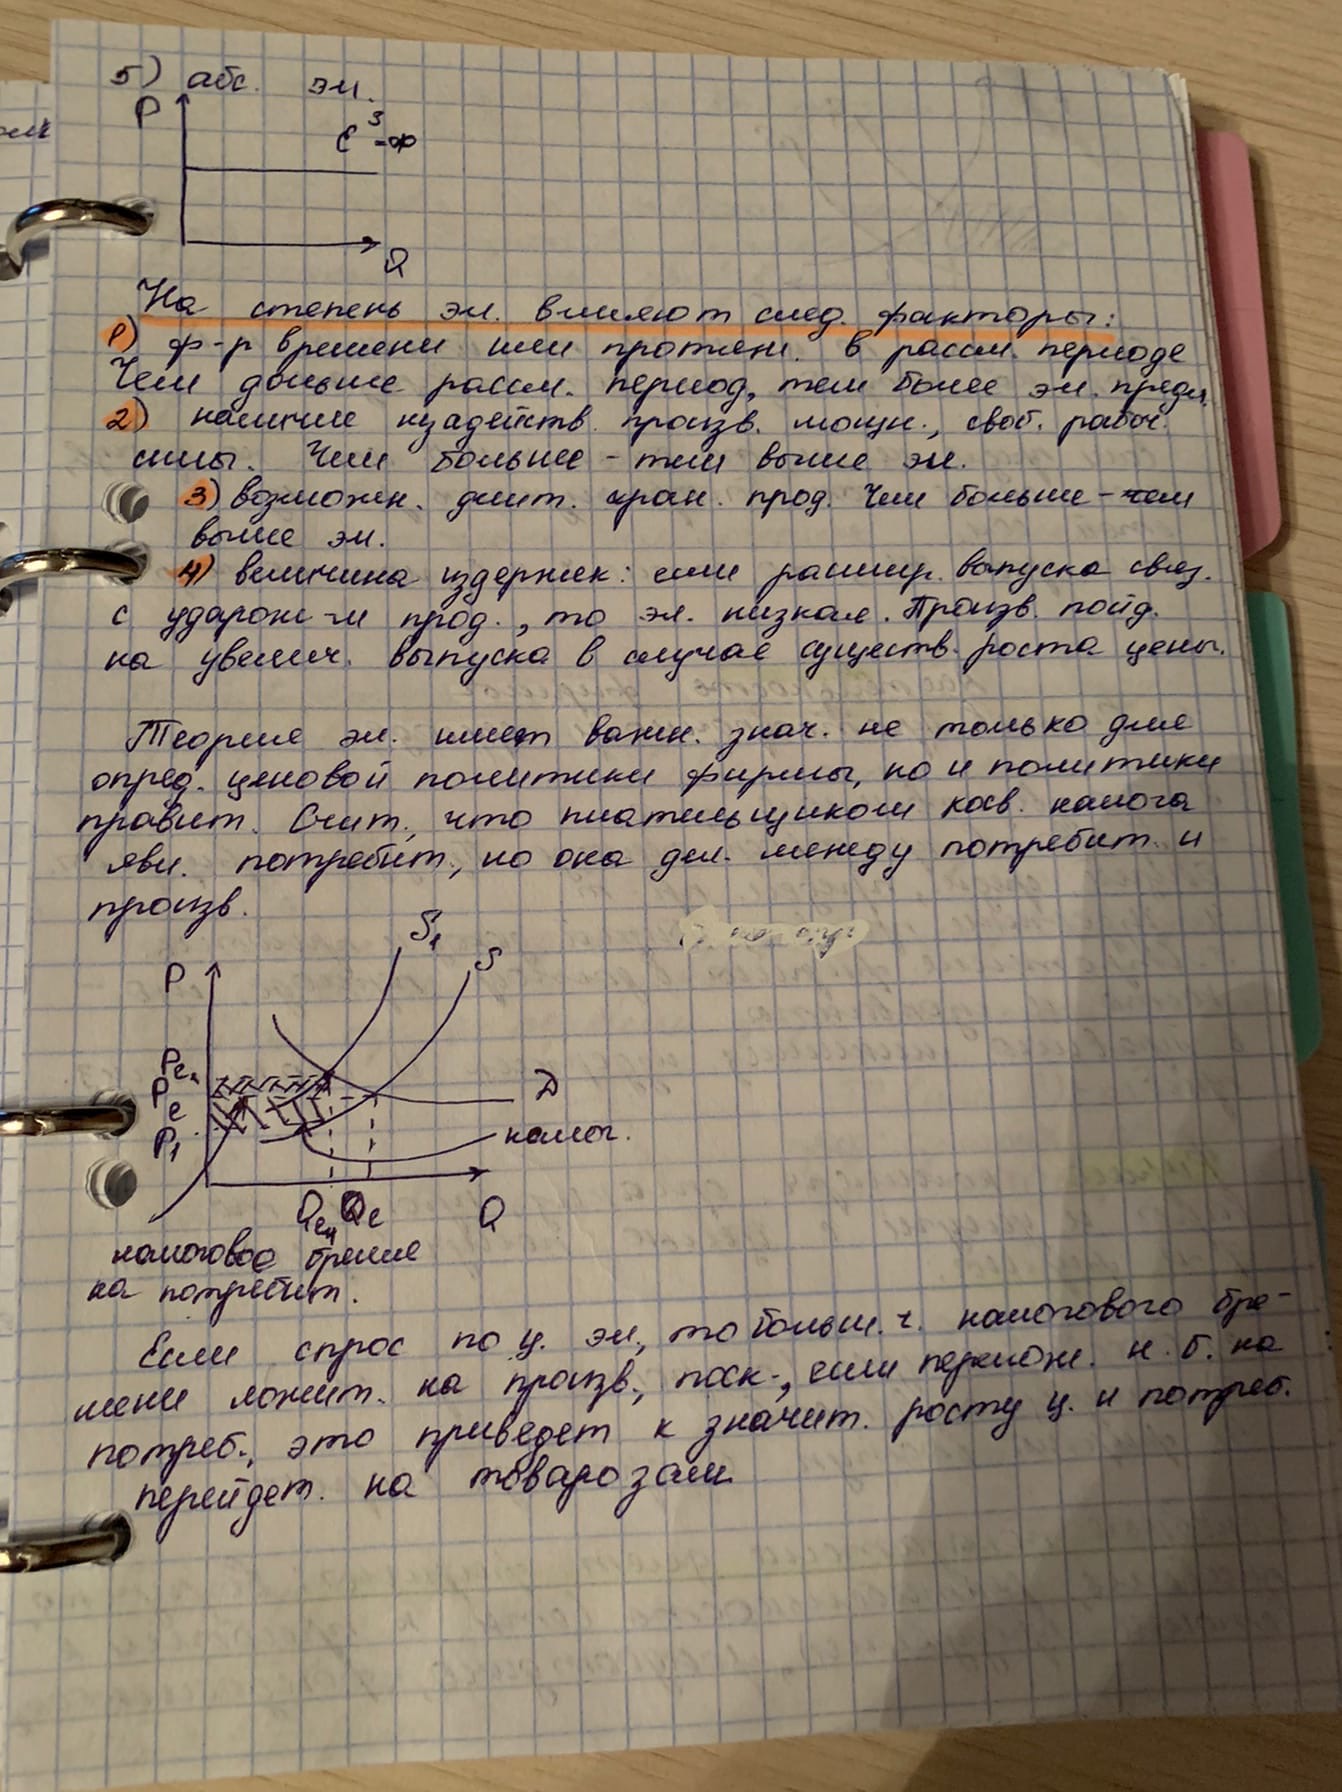 5) абс. эл.
P
E з = ∞
Q
На степень эл. влияют след. факторы:
1) ф-р времени или протяж. в рассм. периоде
Чем дольше рассм. период, тем более эл. предл.
2) наличие незадейств. произв. мощн., своб. рабоч.
силы. Чем больше - тем выше эл.
3) возможн. длит. хран. прод. Чем больше - тем
выше эл.
4) величина издержек: если расшир. выпуска связ.
с удорож-м прод., то эл. низкая. Произв. пойд.
на увелич. выпуска в случае существ. роста цены.
Теория эл. имеет важн. знач. не только для
опред. ценовой политики фирмы, но и политики
правит. Счит., что плательщиком косв. налога
явл. потребит., но она дел. между потребит. и
произв.
S1
S
P
Pe1
Pe
P1
D
налог.
Qe1 Qe Q
налоговое бремя
на потребит.
Если спрос по ц. эл., то больш. ч. налогового бре-
мени ложит. на произв., поск., если перелож. н. б. на
потреб., это приведет к значит. росту ц. и потреб.
перейдет. на товарозам.